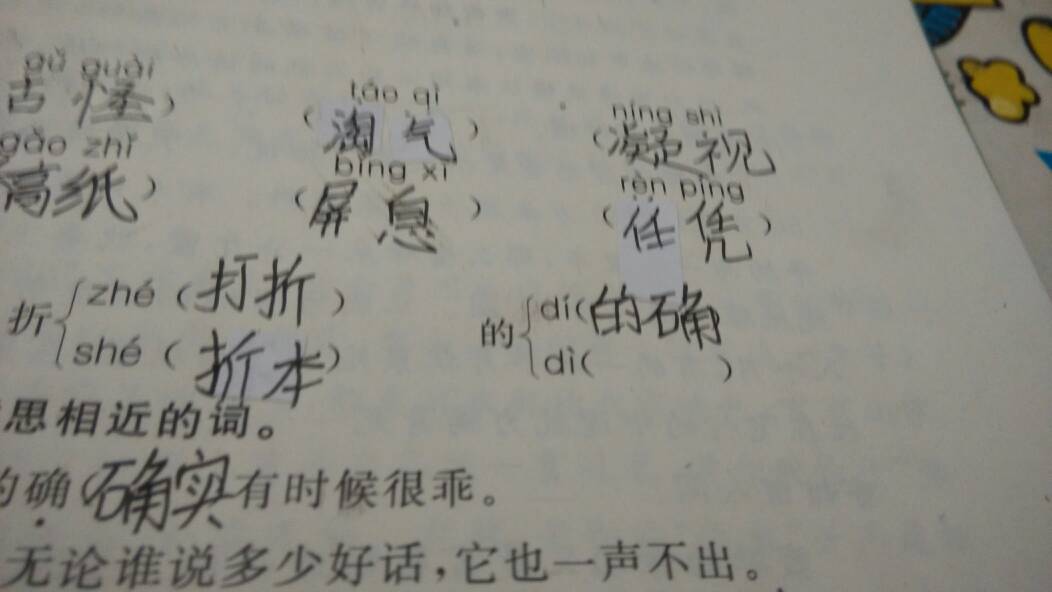 gǔ guài táo qì níng shì
古怪） （淘气） （凝视
gǎo zhǐ bǐng xī rèn píng
稿纸） （屏息） （任凭）
折 zhé（打折） 的 dí(的确
shé（折本） dì( )
思相近的词。
的确（确实 有时候很乖。
无论谁说多少好话，它也一声不出。